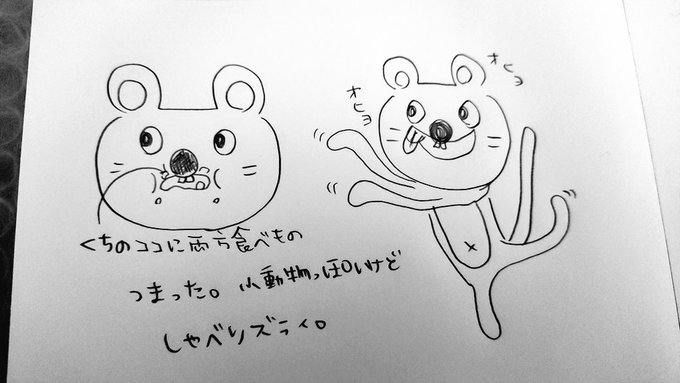 オヒョ
オヒョ
くちのココに両方食べもの
つまった。小動物っぽいけど
しゃべりズライ。